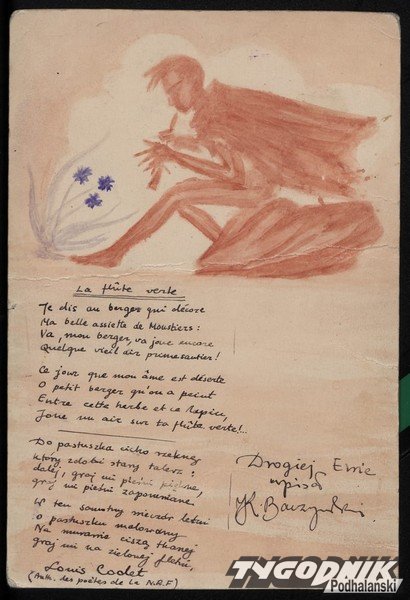 La flûte verte
Je dis au berger qui décore
Ma belle assiette de Moustiers:
Va, mon berger, va joue encore
Quelque vieil air primesautier!
Ce jour que mon âme est déserte
O petit berger qu'on a peint
Entre cette herbe et ce lapin,
Joue un air sur ta flûte verte!..
Do pastuszka cicho rzeknę
który zdobi stary talerz:
dalej, graj mi pieśni piękne,
graj mi pieśni zapomniane.
W ten smutny wieczór letni
O pastuszku malowany
Na muranie ciszą tkanej
graj mi na zielonej fletni,
Louis Codet
(Anth. des poètes de la N.R.F)
Drogiej Ewie
wpisał
K. Baczyński
TYGODNIK
Podhalański